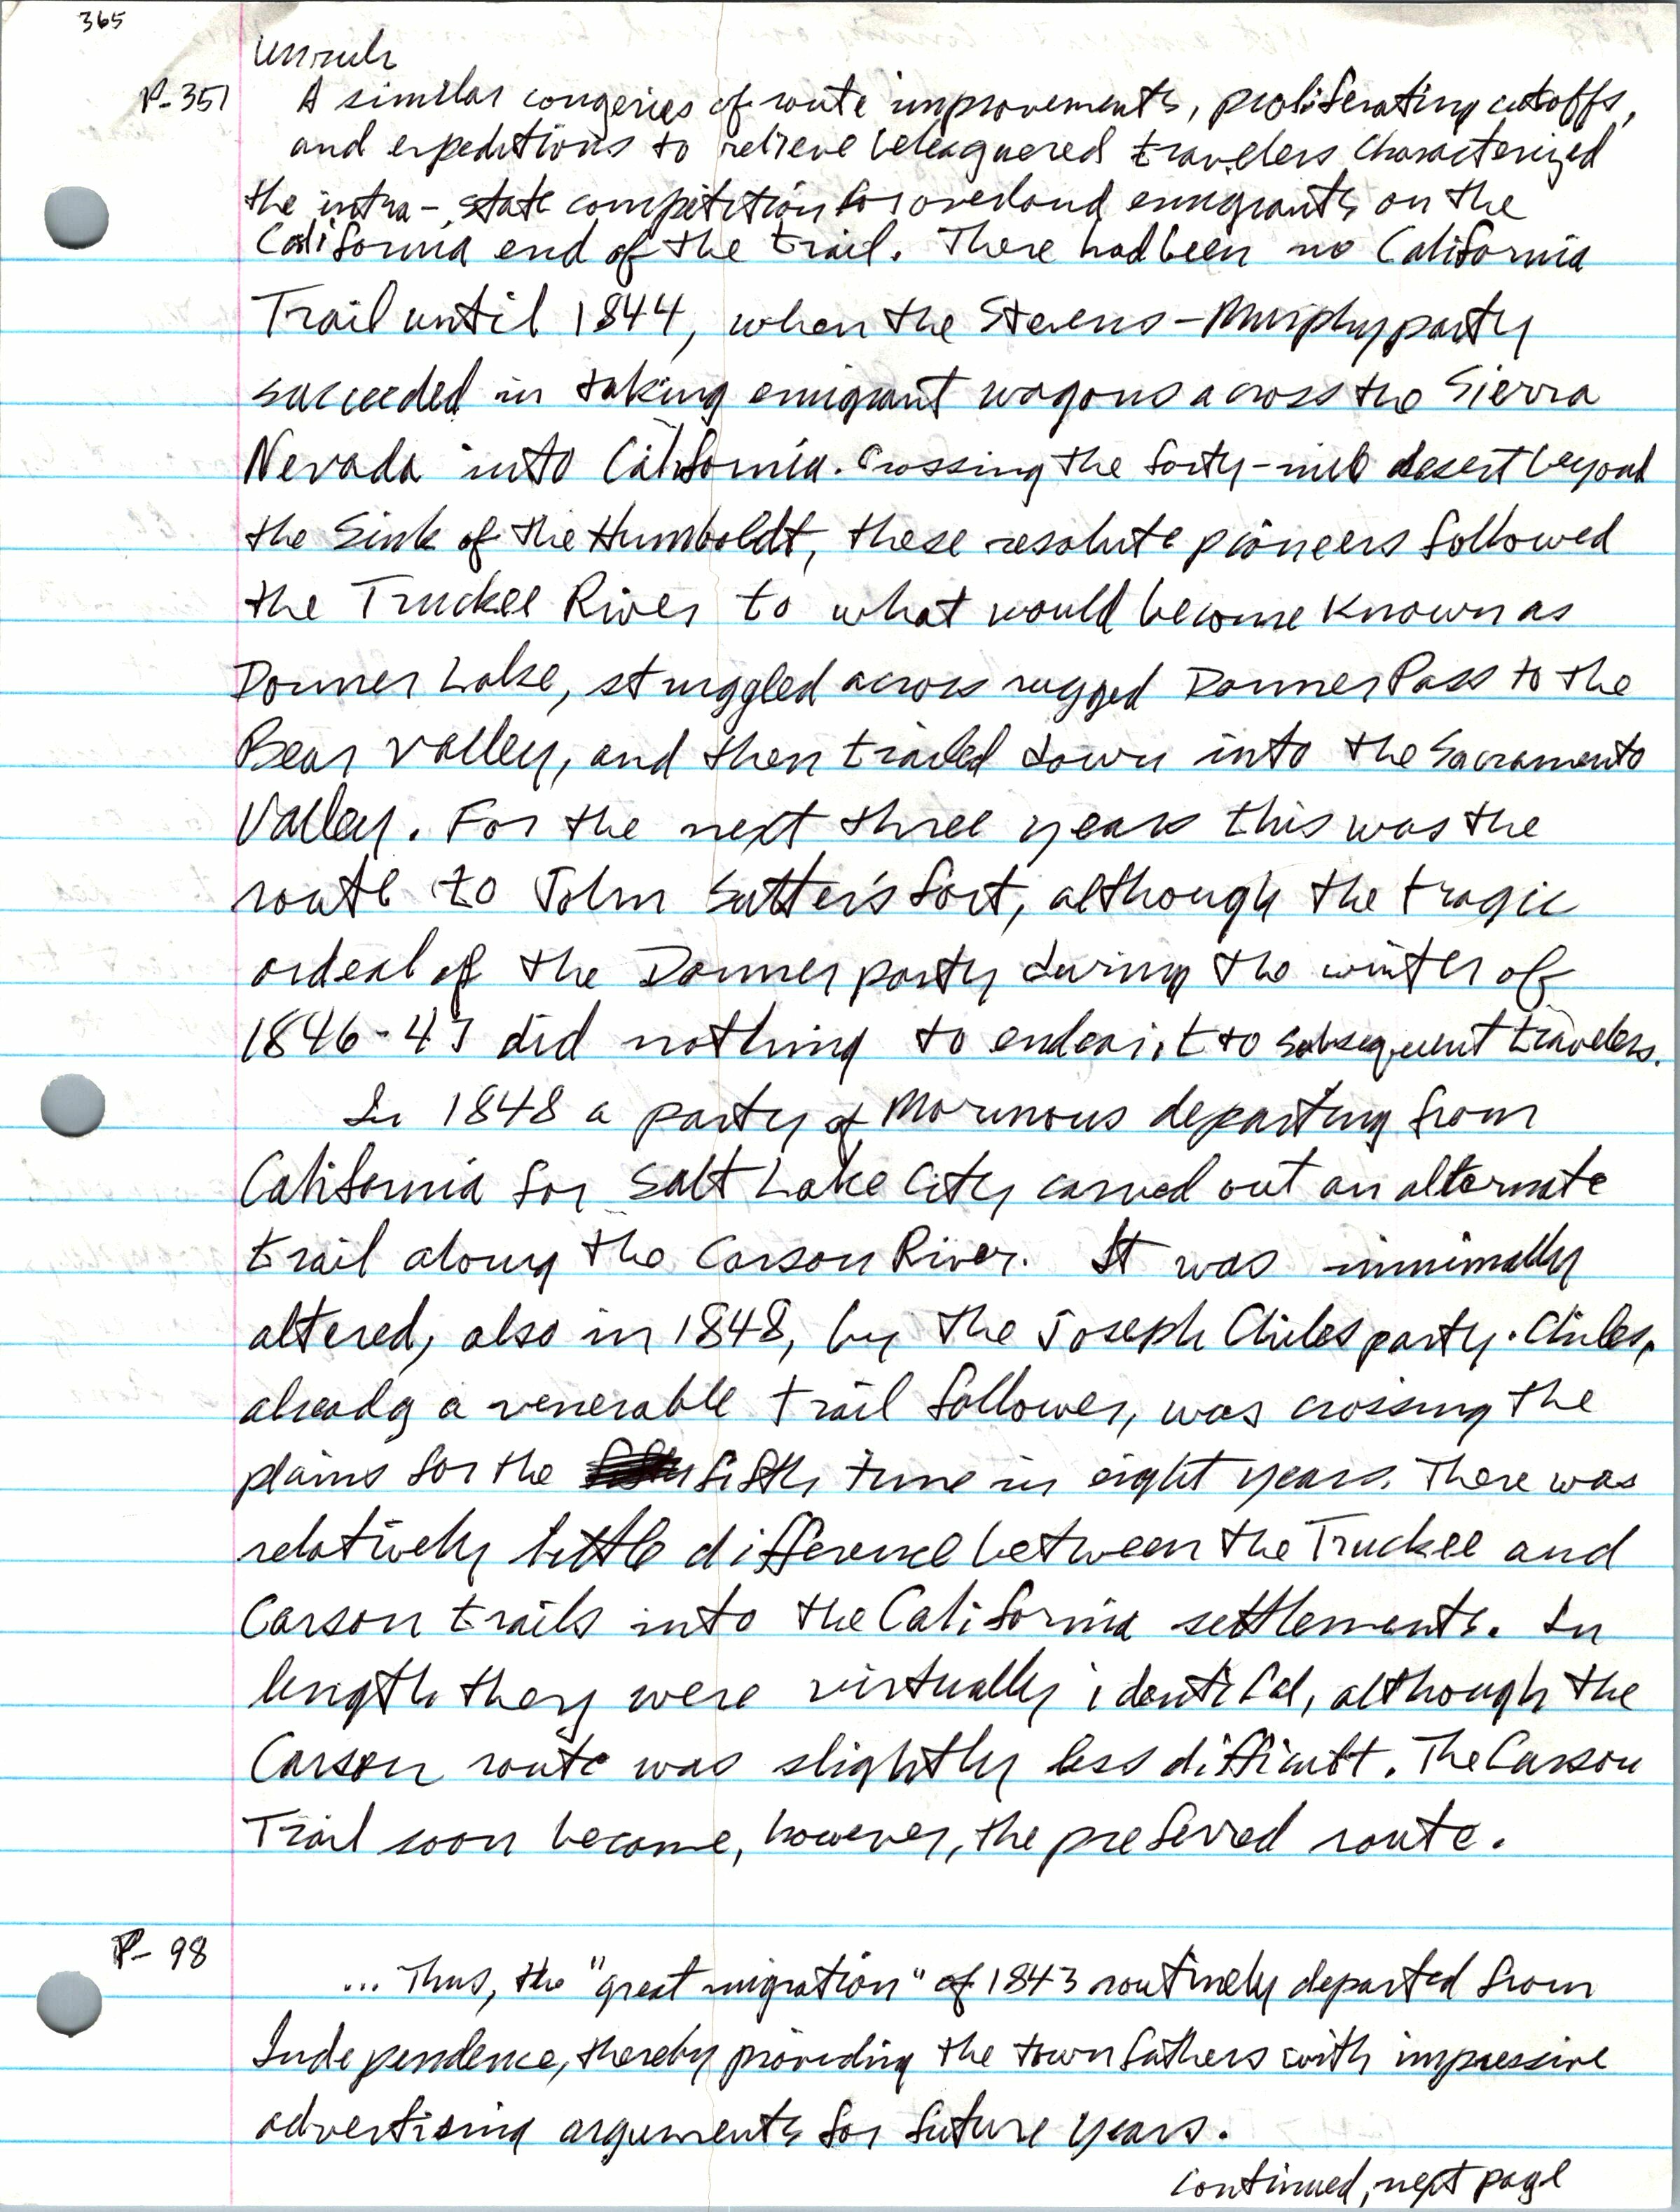 365
Unruh
P-351 A similar congeries of route improvements, proliferating cutoffs,
and expeditions to relieve beleaguered travelers characterized
the intra-state competition for overland emigrants on the
California end of the trail. There had been no California
Trail until 1844, when the Stevens-Murphy party
succeeded in taking emigrant wagons across the Sierra
Nevada into California. Crossing the forty-mile desert beyond
the Sink of the Humboldt, these resolute pioneers followed
the Truckee River to what would become known as
Donner Lake, struggled across rugged Donner Pass to the
Bear Valley, and then trailed down into the Sacramento
Valley. For the next three years this was the
route to John Sutter's fort, although the tragic
ordeal of the Donner party during the winter of
1846-47 did nothing to endear it to subsequent travelers.
In 1848 a party of Mormons departing from
California for Salt Lake City carved out an alternate
trail along the Carson River. It was minimally
altered, also in 1848, by the Joseph Chiles party. Chiles,
already a venerable trail follower, was crossing the
plains for the fifth time in eight years. There was
relatively little difference between the Truckee and
Carson trails into the California settlements. In
length they were virtually identical, although the
Carson route was slightly less difficult. The Carson
Trail soon became, however, the preferred route.
P-98
... Thus, the "great migration" of 1843 routinely departed from
Independence, thereby providing the town fathers with impressive
advertising arguments for future years.
continued, next page